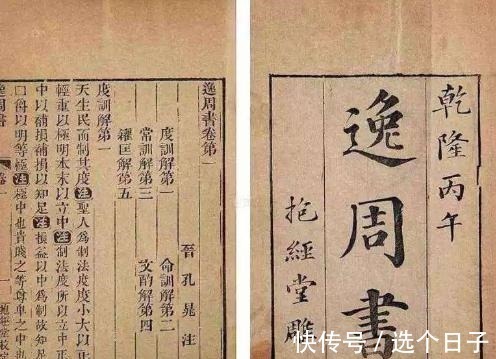 乾隆丙午
逸周書
抱經堂雕
逸周書卷第一
晉孔晁注
度訓解第一 命訓解第二
常訓解第三 文酌解第四
糴匡解第五
度訓解第一
天生民而制其度注聖人爲制法度度小大以正
輕重以極明本末以立中注制法度所以立中正
中以補損補損以知足注損益以中爲制故知
□爵以明等極注極中也貴賤之等尊卑之中
逸周書 卷一
快传号/选个日子